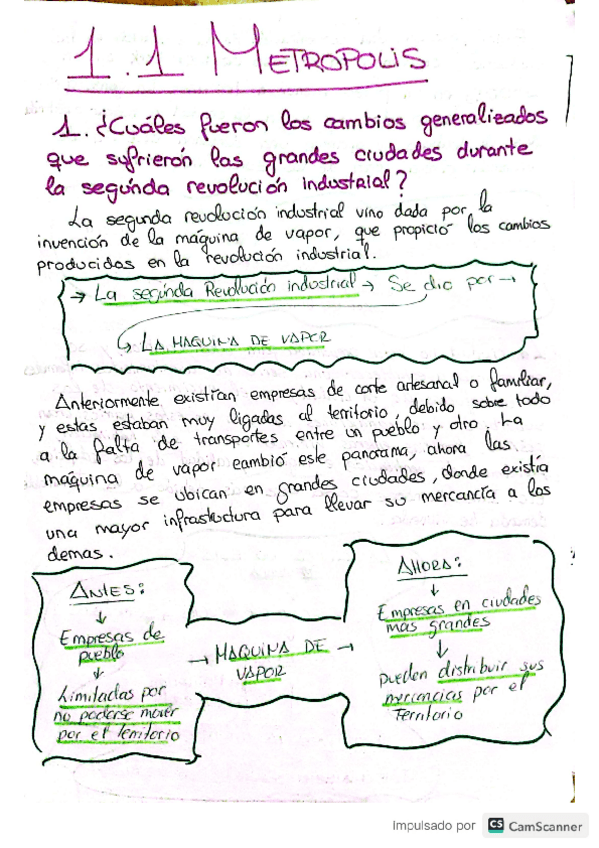 1.1 METROPOLIS
1. ¿Cuáles fueron los cambios generalizados
que sufrierón las grandes ciudades durante
la segúnda revolución industrial?
La segunda revolución industrial vino dada por la
invención de la máquina de vapor, que propició los cambios
producidos en la revolución industrial.
→ La segúnda Revolución industrial → Se dio por →
LA MAQUINA DE VAPOR
Anteriormente existían empresas de corte artesanal o familiar,
y estas, estaban muy ligadas al territorio, debido sobre todo
a la falta de transportes entre un pueblo y otro. La
máquina de vapor cambió este panorama, ahora las
empresas se ubican en grandes ciudades, donde existía
una mayor infrastuctura para llevar su mercancía a los
demas.
ANTES:
↓
Empresas de
pueblo
↓
Limitadas por
no poderse mover
por el territorio
→ MAQUINA DE →
VAPOR
AHORA:
↓
Empresas en ciudades
más grandes
↓
pueden distribuir sus
mercancias por el
Territorio
Impulsado por CS CamScanner